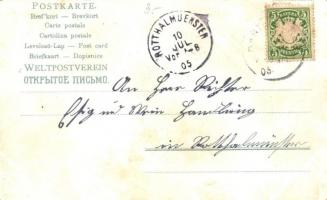 POSTKARTE.
Bref-kort — Brevkort
Carte postale
Cartolina postale
Levelezö-Lap — Post card
Briefkaart — Dopisnice
WELTPOSTVEREIN
ОТКРЫТОЕ ПИСЬМО.
ROTTHALMUENSTER
10
JUL
VOR 7-8
05
05.
5
5
An Herr Richter
Essig und Wein Handlung
in Rotthalmünster